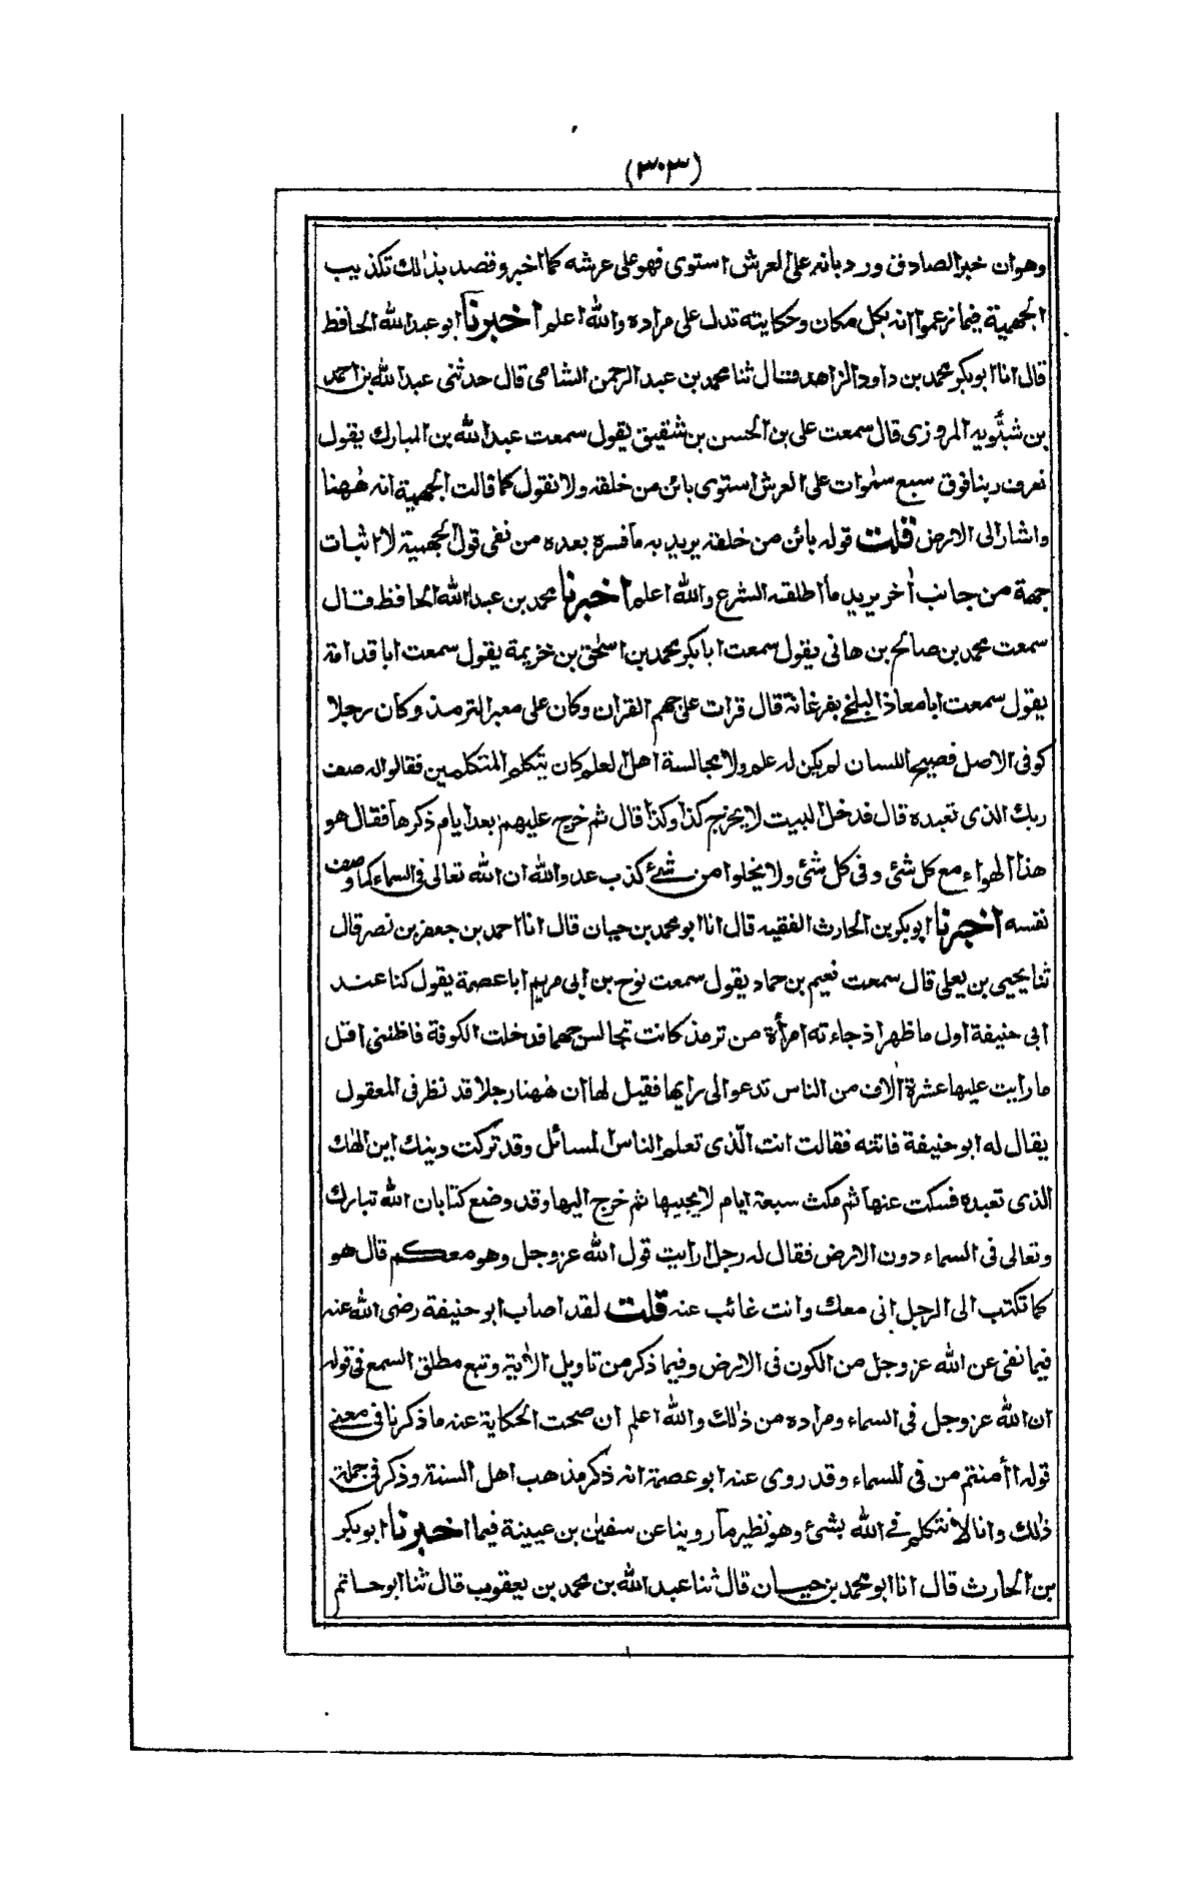 (٣٠٣)
وهو ان خبر الصادق ورد بانه على العرش استوى فهو على عرشه كما اخبر وقصد بذٰلك تكذيب
الجهمية فيما زعموا انه بكل مكان وحكايته تدل على مراده والله اعلم اخبرنا ابو عبد الله الحافظ
قال انا ابو بكر محمد بن داود الزاهد قال ثنا محمد بن عبد الرحمن الشامى قال حدثنى عبد الله بن احمد
بن شبّويه المروزى قال سمعت على بن الحسن بن شقيق يقول سمعت عبد الله بن المبارك يقول
نعرف ربنا فوق سبع سمٰوات على العرش استوى بائن من خلقه ولا نقول كما قالت الجهمية انه هٰهنا
واشار الى الارض قلت قوله بائن من خلقه يريد به ما فسره بعده من نفى قول الجهمية لا اثبات
جهة من جانب اٰخر يريد ما اطلقه الشرع والله اعلم اخبرنا محمد بن عبد الله الحافظ قال
سمعت محمد بن صالح بن هانى يقول سمعت ابا بكر محمد بن اسحٰق بن خزيمة يقول سمعت ابا قدامة
يقول سمعت ابا معاذ البلخى بفرغانة قال قرات على جهم القران وكان على معبر الترمذ وكان رجلا
كوفى الاصل فصيح اللسان لم يكن له علم ولا مجالسة اهل العلم كان يتكلم المتكلمين فقالوا له صف
ربك الذى تعبده قال فدخل البيت لا يخرج كذا وكذا قال ثم خرج عليهم بعد ايام ذكرها فقال هو
هذا الهواء مع كل شئ وفى كل شئ ولا يخلوا من شئ كذب عدو الله ان الله تعالى فى السماء كما وصف
نفسه اخبرنا ابو بكر بن الحارث الفقيه قال انا ابو محمد بن حيان قال انا احمد بن جعفر بن نصر قال
ثنا يحيى بن يعلى قال سمعت نعيم بن حماد يقول سمعت نوح بن ابى مريم ابا عصمة يقول كنا عند
ابى حنيفة اول ما ظهر اذ جاءته امرأة من ترمذ كانت تجالس جهما فدخلت الكوفة فاظننى اقل
ما رايت عليها عشرة اٰلاف من الناس تدعو الى رايها فقيل لها ان هٰهنا رجلا قد نظر فى المعقول
يقال له ابو حنيفة فاتته فقالت انت الّذى تعلم الناس المسائل وقد تركت دينك اين الٰهك
الذى تعبده فسكت عنها ثم مكث سبعة ايام لا يجيبها ثم خرج اليها وقد وضع كتابا ان الله تبارك
وتعالى فى السماء دون الارض فقال له رجل ارايت قول الله عز وجل وهو معكم قال هو
كما تكتب الى الرجل انى معك وانت غائب عنه قلت لقد اصاب ابو حنيفة رضى الله عنه
فيما نفى عن الله عز وجل من الكون فى الارض وفيما ذكر من تاويل الاٰية وتبع مطلق السمع فى قوله
ان الله عز وجل فى السماء ومراده من ذٰلك والله اعلم ان صحت الحكاية عنه ما ذكرنا فى معنى
قوله اأمنتم من فى السماء وقد روى عنه ابو عصمة انه ذكر مذهب اهل السنة وذكر فى جملة
ذٰلك وانا لا نتكلم فى الله بشئ وهو نظير ما روينا عن سفيٰن بن عيينة فيما اخبرنا ابو بكر
بن الحارث قال انا ابو محمد بن حيان قال ثنا عبد الله بن محمد بن يعقوب قال ثنا ابو حاتم